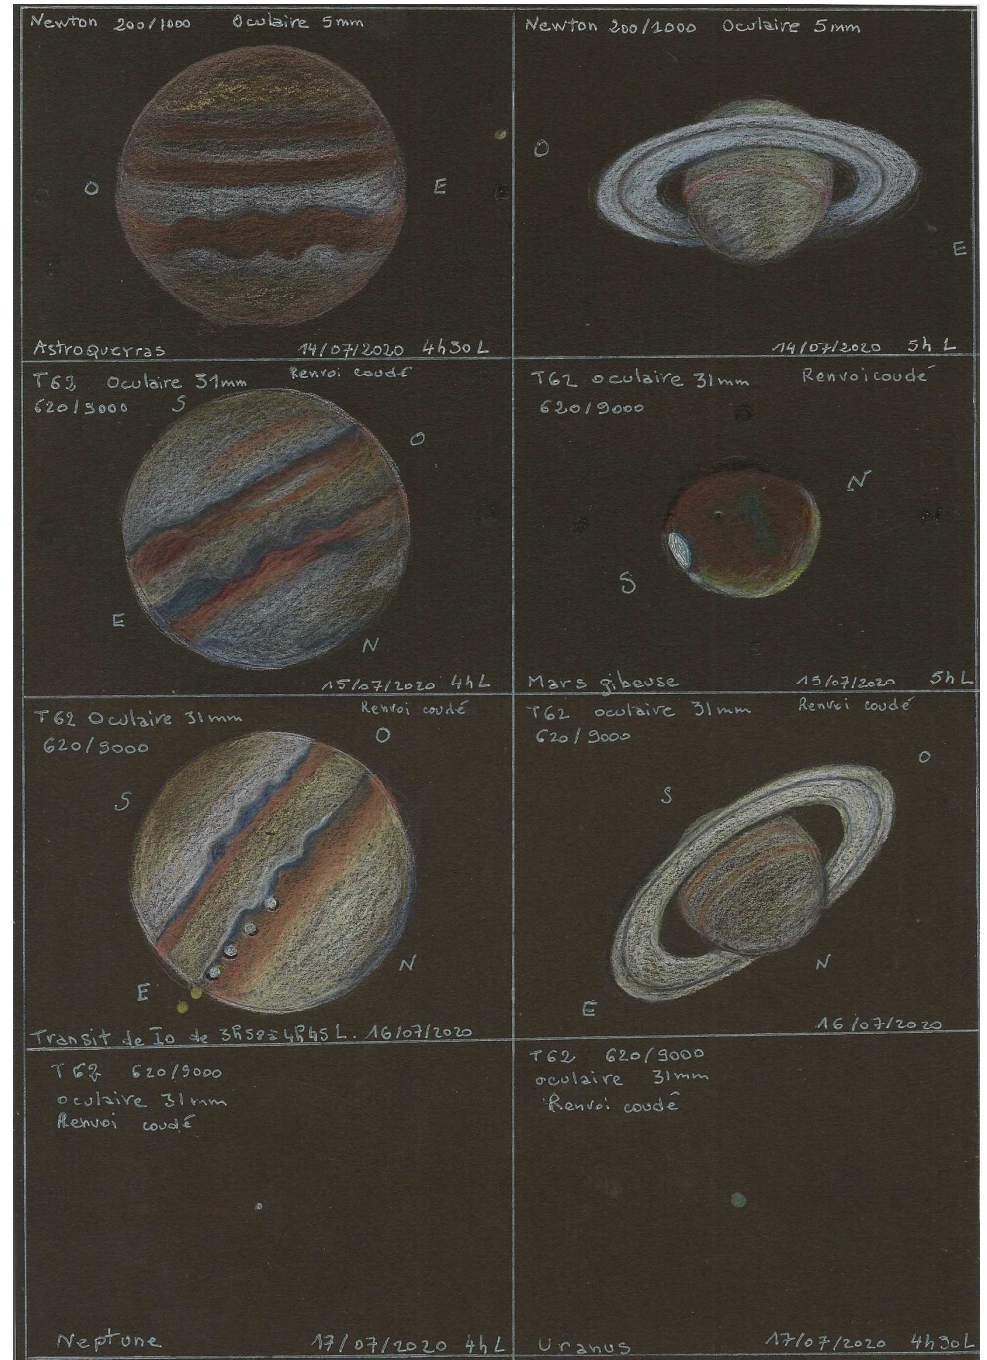 Newton 200/1000 Oculaire 5mm
O
E
Astroquerras 14/07/2020 4h30L
Newton 200/1000 Oculaire 5mm
O
E
14/07/2020 5h L
T62 Oculaire 31mm Renvoi coudé
620/9000
S
O
E
N
15/07/2020 4h L
T62 oculaire 31mm Renvoi coudé
620/9000
N
S
Mars gibeuse 15/07/2020 5h L
T62 Oculaire 31mm Renvoi coudé
620/9000
O
S
N
E
Transit de Io de 3h58 à 4h45 L. 16/07/2020
T62 oculaire 31mm Renvoi coudé
620/9000
O
S
N
E
16/07/2020
T62 620/9000
oculaire 31mm
Renvoi coudé
Neptune 17/07/2020 4h L
T62 620/9000
oculaire 31mm
Renvoi coudé
Uranus 17/07/2020 4h30L